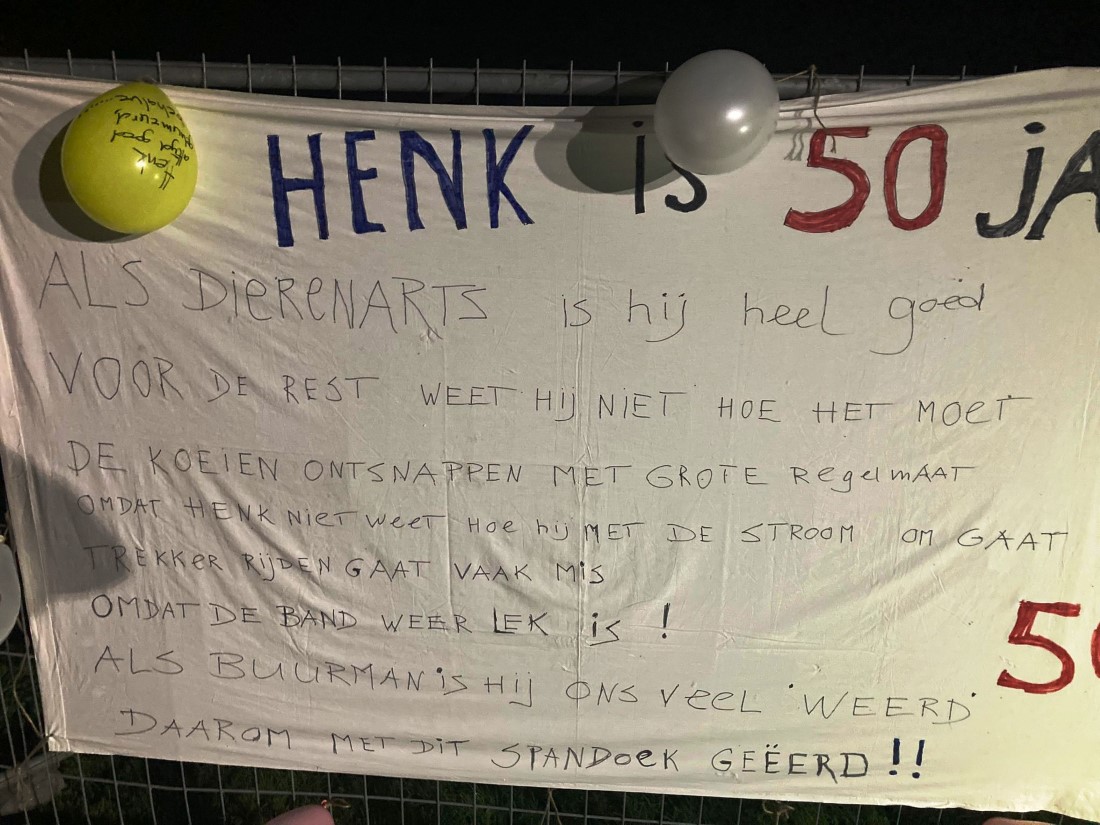 HENK is 50 JA
ALS DiERENARTS is hij heel goed
VOOR DE REST WEET HIJ NIET HOE HET MOET
DE KOEIEN ONTSNAPPEN MET GROTE RegelmAAT
OMDAT HENK NIET weeT Hoe hij MET DE STROOM OM GAAT
TREKKER RIJDEN GAAT VAAK Mis
OMDAT DE BAND WEER LEK is !
ALS BUURMAN is HIJ ONS VEEL 'WEERD'
DAAROM MET DIT SPANDOEK GEËERD !!
50
Henk
altijd goed